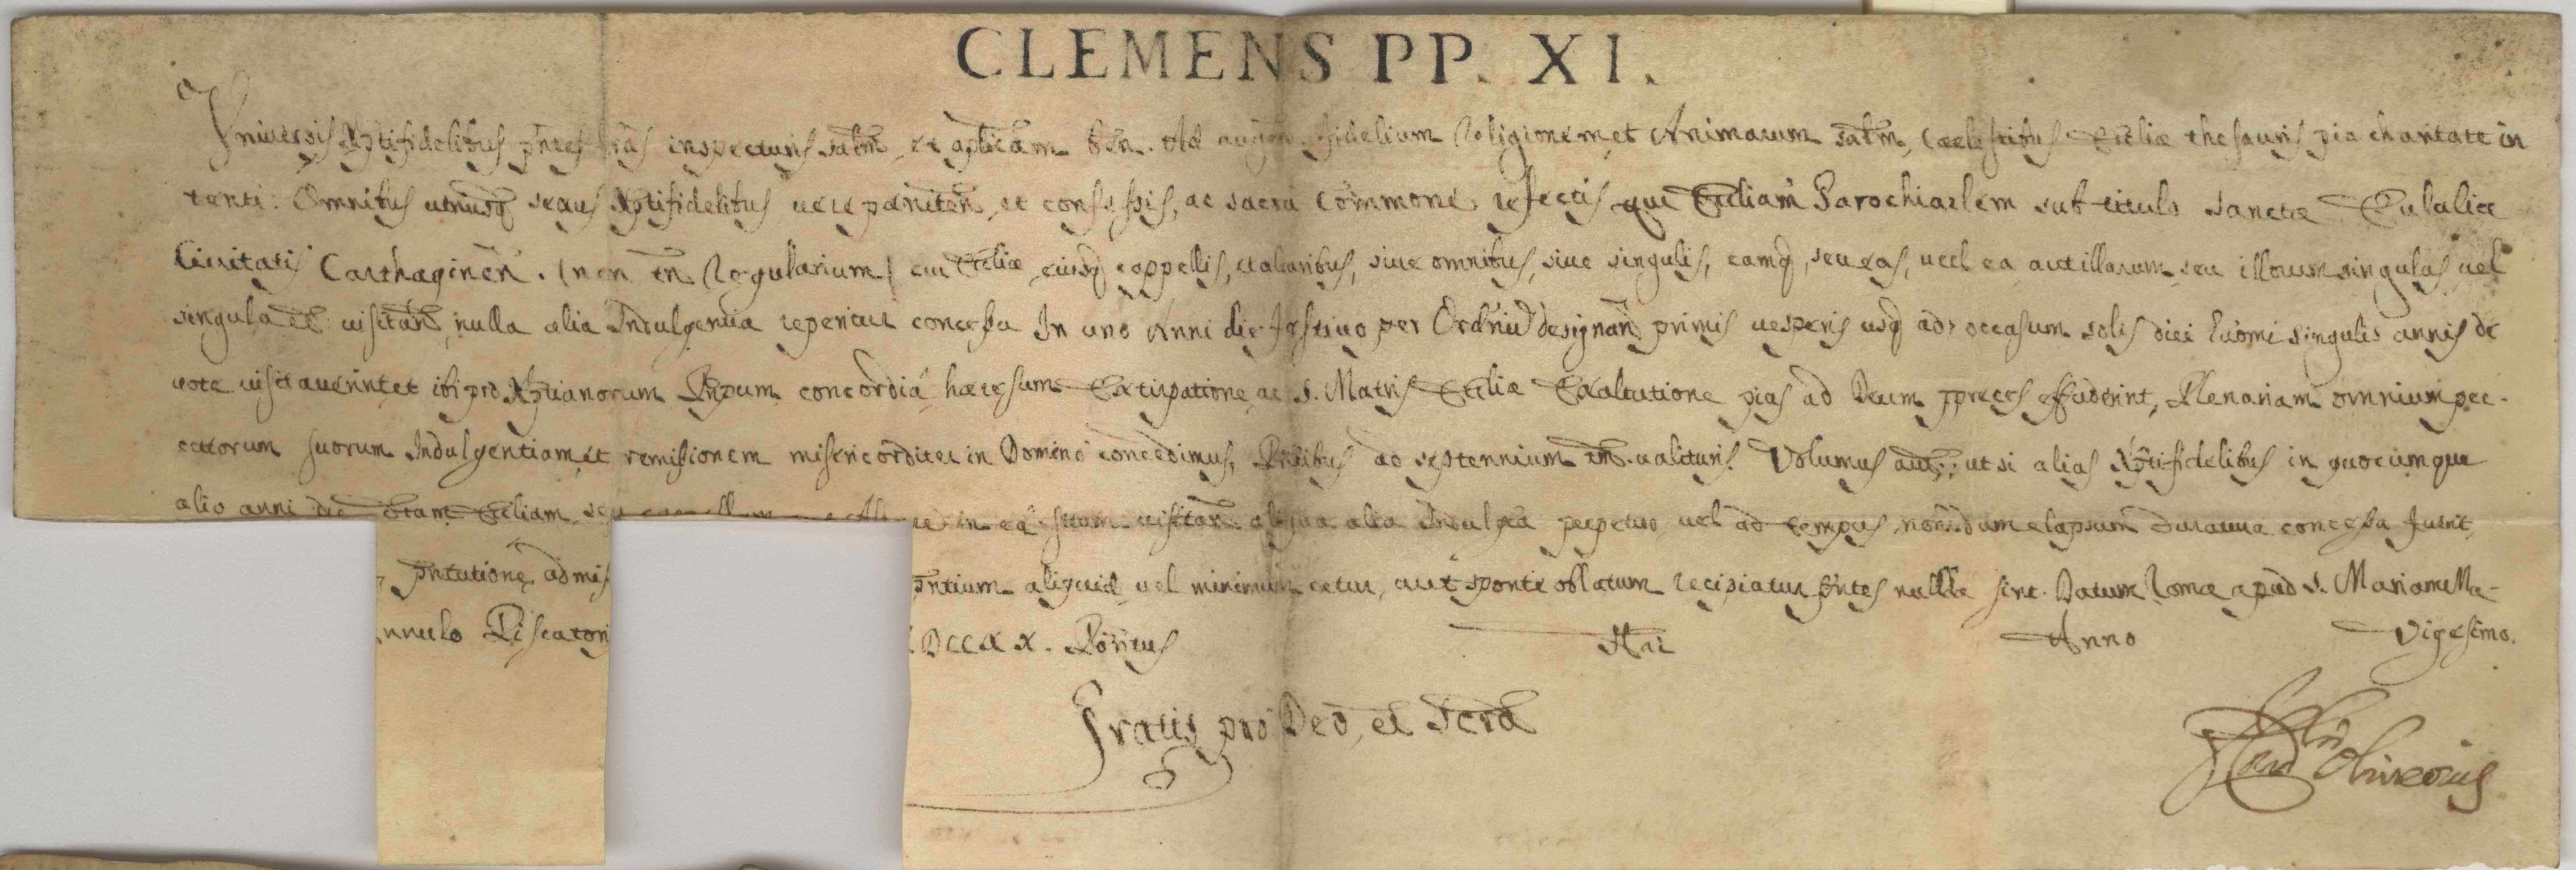 CLEMENS PP. XI.
Vniuersis Xptifidelibus pntes lras inspecturis saltm et aplicam ben. Ad augen. fidelium Religionem, et Animarum saltm, Cælestibus Eccliæ thesauris pia charitate in
tenti: Omnibus utriusq sexus Xptifidelibus uere pæniten. et confessis, ac sacra Commone refectis, qui Eccliam Parochialem sub titulo Sanctæ Eulaliæ
Ciuitatis Carthaginen. (non tn Regularium) cui Eccliæ eiusq cappellis, et altaribus, siue omnibus, siue singulis, eamq, seu eas, uel ea aut illarum seu illorum singulas uel
singula et uisitan, nulla alia Indulgentia reperitur concessa In uno Anni die festiuo per Ordriu designan primis uesperis usq ad occasum solis diei huiomi singulis annis de
uote uisitauerint et ibi pro Xptianorum Pnpum concordia, hæresum Extirpatione, ac S. Matris Eccliæ Exaltatione pias ad Deum ppreces effuderint, Plenariam omnium pec-
catorum suorum Indulgentiam, et remissionem misericorditer in Domino concedimus, Pntibus ad septennium tm. ualituris. Volumus aut; ut si alias Xptifidelibus in quocumque
alio anni die dictam Eccliam seu in ea sitam uisitan aliqua alia Indulgea perpetuo uel ad tempus nondum elapsum duratura concessa fuerit,
pntatione, admis pntium aliquid uel minimum detur, aut sponte oblatum recipiatur pntes nullæ sint. Datum Romæ apud S. Mariam Ma-
nnulo Piscatori DCCXX. Pontus Nri Anno Vigesimo.
Gratis pro Deo, et Scra
Card Oliuerius